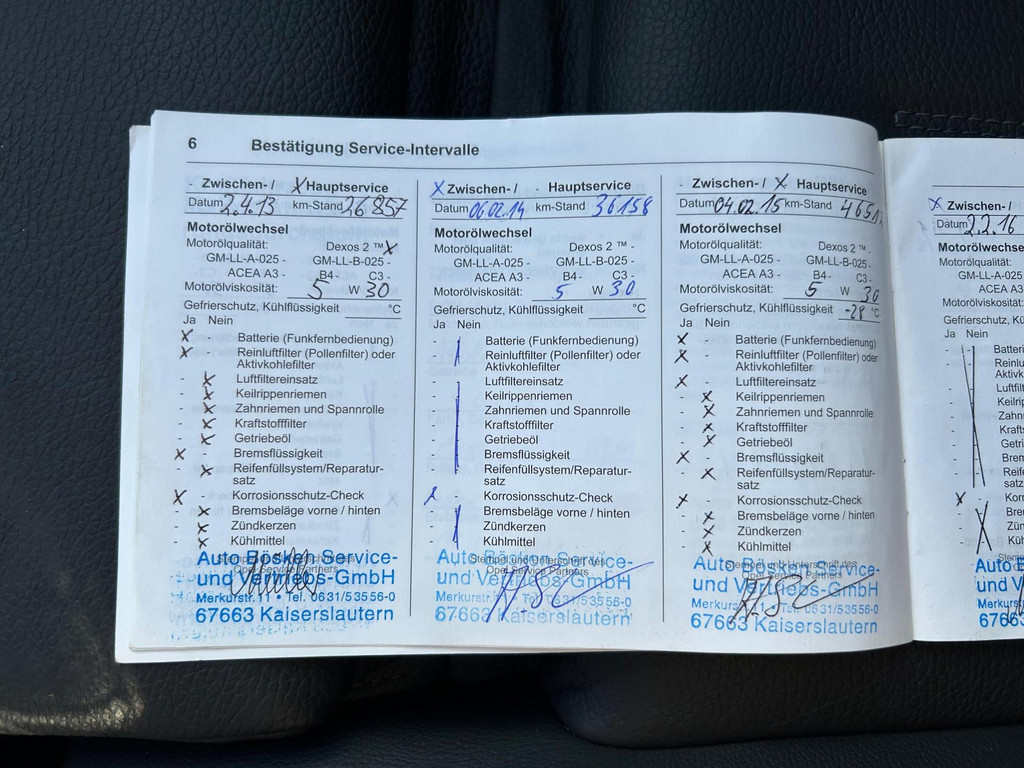 6 Bestätigung Service-Intervalle
- Zwischen- / X Hauptservice
Datum 2.4.13 km-Stand 26 857
Motorölwechsel
Motorölqualität: Dexos 2 ™ X
GM-LL-A-025 - GM-LL-B-025 -
ACEA A3 - B4- C3 -
Motorölviskosität: 5 W 30
Gefrierschutz, Kühlflüssigkeit °C
Ja Nein
X - Batterie (Funkfernbedienung)
X - Reinluftfilter (Pollenfilter) oder
Aktivkohlefilter
- X Luftfiltereinsatz
- X Keilrippenriemen
- X Zahnriemen und Spannrolle
- X Kraftstofffilter
- X Getriebeöl
X - Bremsflüssigkeit
- X Reifenfüllsystem/Reparatur-
satz
X - Korrosionsschutz-Check
- X Bremsbeläge vorne / hinten
- X Zündkerzen
- X Kühlmittel
Stempel und Unterschrift des
Opel Service Partners
Auto Bösken Service-
und Vertriebs-GmbH
Merkurstr. 11 • Tel. 0631/53556-0
67663 Kaiserslautern
X Zwischen- / - Hauptservice
Datum 06.02.14 km-Stand 36158
Motorölwechsel
Motorölqualität: Dexos 2 ™ -
GM-LL-A-025 - GM-LL-B-025 -
ACEA A3 - B4- C3 -
Motorölviskosität: 5 W 30
Gefrierschutz, Kühlflüssigkeit °C
Ja Nein
- Batterie (Funkfernbedienung)
- Reinluftfilter (Pollenfilter) oder
Aktivkohlefilter
- Luftfiltereinsatz
- Keilrippenriemen
- Zahnriemen und Spannrolle
- Kraftstofffilter
- Getriebeöl
- Bremsflüssigkeit
- Reifenfüllsystem/Reparatur-
satz
X - Korrosionsschutz-Check
- Bremsbeläge vorne / hinten
- Zündkerzen
- Kühlmittel
Stempel und Unterschrift des
Opel Service Partners
Auto Bösken Service-
und Vertriebs-GmbH
Merkurstr. 11 • Tel. 0631/53556-0
67663 Kaiserslautern
- Zwischen- / X Hauptservice
Datum 04.02.15 km-Stand
Motorölwechsel
Motorölqualität: Dexos 2 ™ -
GM-LL-A-025 - GM-LL-B-025 -
ACEA A3 - B4- C3 -
Motorölviskosität: 5 W 30
Gefrierschutz, Kühlflüssigkeit -28 °C
Ja Nein
X - Batterie (Funkfernbedienung)
X - Reinluftfilter (Pollenfilter) oder
Aktivkohlefilter
X - Luftfiltereinsatz
- X Keilrippenriemen
- X Zahnriemen und Spannrolle
- X Kraftstofffilter
- X Getriebeöl
X - Bremsflüssigkeit
- X Reifenfüllsystem/Reparatur-
satz
X - Korrosionsschutz-Check
- X Bremsbeläge vorne / hinten
- X Zündkerzen
- X Kühlmittel
Stempel und Unterschrift des
Opel Service Partners
Auto Bösken Service-
und Vertriebs-GmbH
Merkurstr. 11 • Tel. 0631/53556-0
67663 Kaiserslautern
X Zwischen- /
Datum 2.2.16
Motorölwechse
Motorölqualität:
GM-LL-A-025
ACEA A3 -
Motorölviskosität:
Gefrierschutz, Kü
Ja Nein
- Batteri
- Reinlu
Aktivk
- Luftfil
- Keilrip
- Zahnr
- Krafts
- Getri
- Brem
- Reife
satz
X - Korro
- Brem
- Zünd
- Küh
Auto Bö
und Ve
Merkurs
67663